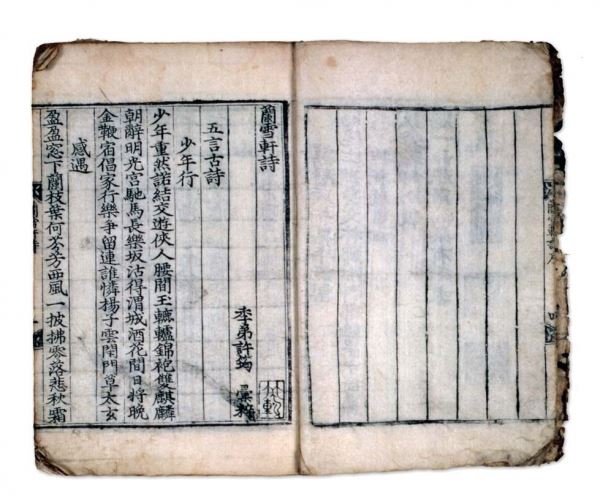 蘭雪軒詩
季弟許筠 彙粹
五言古詩
少年行
少年重然諾結交遊俠人腰間玉轆轤錦袍雙麒麟
朝辭明光宮馳馬長樂坂沽得渭城酒花間日將晚
金鞭宿倡家行樂爭留連誰憐揚子雲閉門草太玄
感遇
盈盈窓下蘭枝葉何芬芳西風一披拂零落悲秋霜